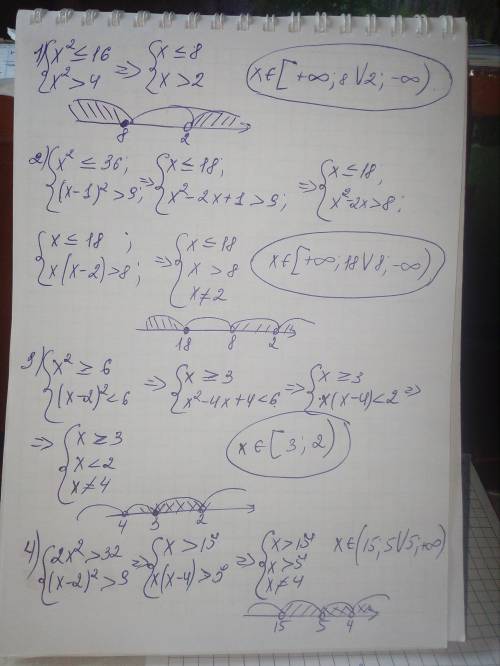 1) { x² ≤ 16 ; x² > 4 => { x ≤ 8 ; x > 2 x ∈ [+∞; 8 \/ 2; -∞)
8 2
2) { x² ≤ 36; (x-1)² > 9; => { x ≤ 18; x² - 2x + 1 > 9; => { x ≤ 18, x² - 2x > 8;
{ x ≤ 18 ; x(x-2) > 8; => { x ≤ 18 x > 8 x ≠ 2 x ∈ [+∞; 18 \/ 8; -∞)
18 8 2
3) { x² ≥ 6 (x-2)² < 6 => { x ≥ 3 x² - 4x + 4 < 6 => { x ≥ 3 x(x-4) < 2 =>
=> { x ≥ 3 x < 2 x ≠ 4 x ∈ [3; 2)
4 3 2
4) { 2x² > 32 (x-2)² > 9 => { x > 15 x(x-4) > 5 => { x > 15 x > 5 x ≠ 4 x ∈ (15; 5 \/ 5; +∞)
15 5 4